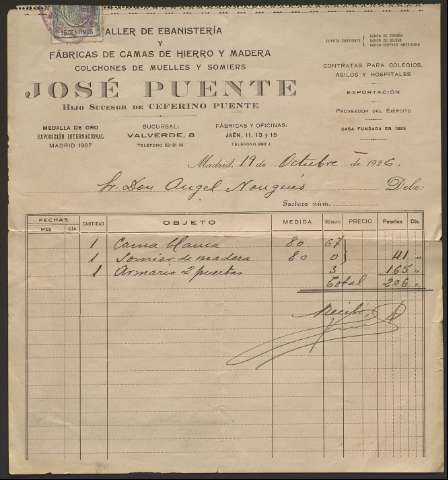 TALLER DE EBANISTERÍA
Y
FÁBRICAS DE CAMAS DE HIERRO Y MADERA
COLCHONES DE MUELLES Y SOMIERS
JOSÉ PUENTE
HIJO SUCESOR DE CEFERINO PUENTE
CUENTA CORRIENTE
BANCO DE ESPAÑA
CONTRATAS PARA COLEGIOS,
ASILOS Y HOSPITALES
EXPORTACIÓN
PROVEEDOR DEL EJÉRCITO
CASA FUNDADA EN
MEDALLA DE ORO
EXPOSICIÓN INTERNACIONAL
MADRID 1907
SUCURSAL:
VALVERDE, 8
TELÉFONO
FÁBRICAS Y OFICINAS:
JAÉN, 11, 13 y 15
TELÉFONO
Madrid, 19 de Octubre de 1926
Sr. Don Angel Nougués Debe:
Factura núm.
FECHAS CANTIDAD OBJETO MEDIDA Número PRECIO Pesetas Cts.
MES DÍA
1 Cama blanca 80 67
1 Somier de madera 80 0 41 "
1 Armario 2 puertas 3 165 "
Total 206 "
Recibí